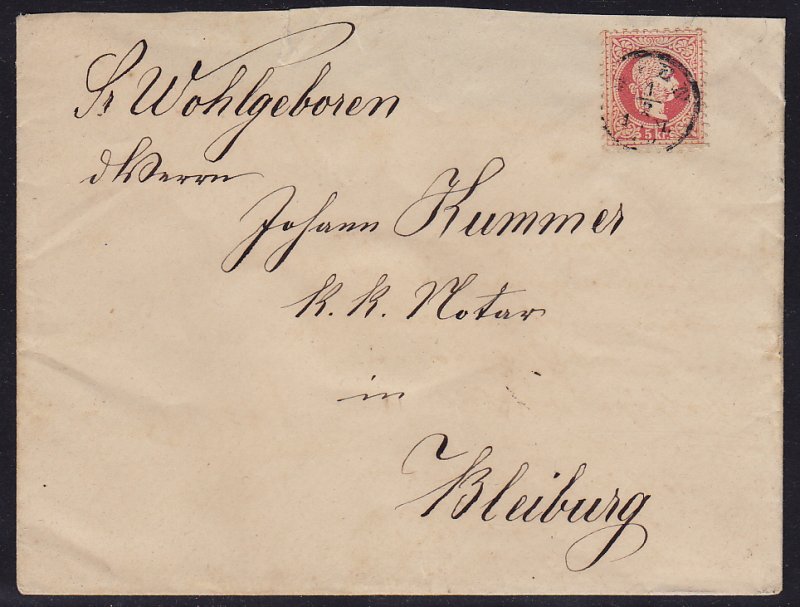 Sr Wohlgeboren
d Herrn
Johann Kummer
k. k. Notar
in
Bleiburg
5 kr